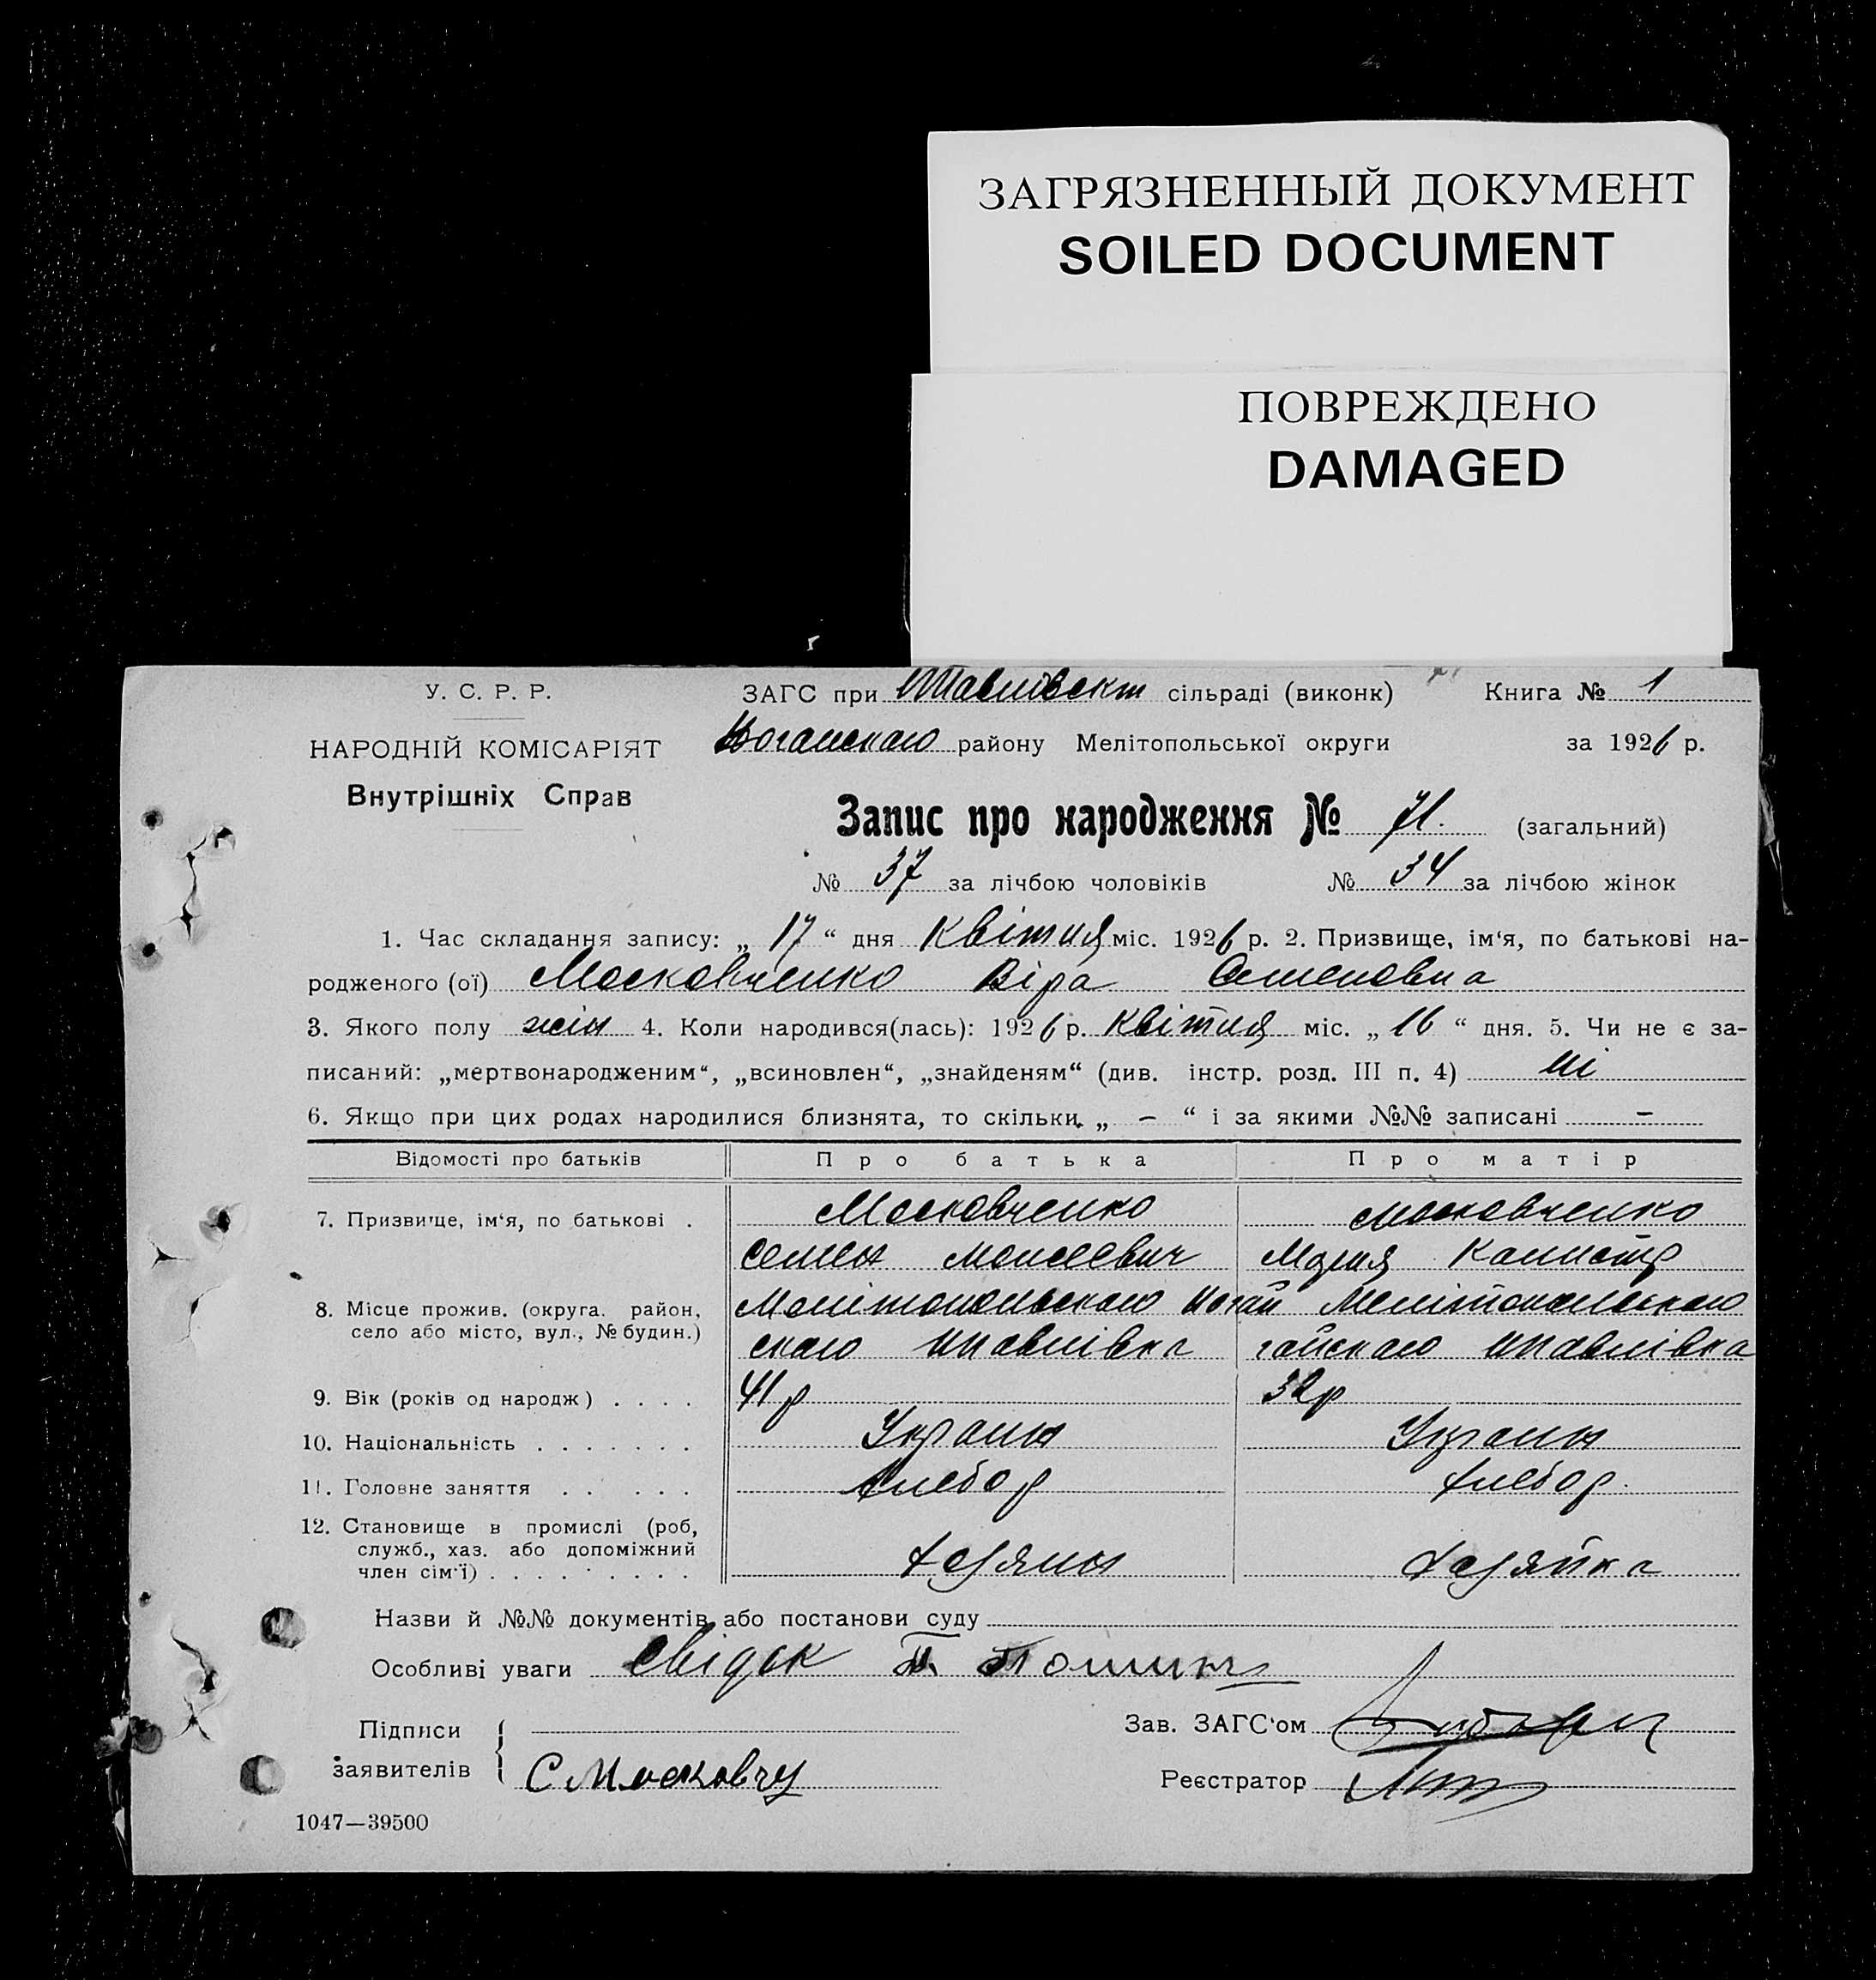 ЗАГРЯЗНЕННЫЙ ДОКУМЕНТ
SOILED DOCUMENT
ПОВРЕЖДЕНО
DAMAGED
У. С. Р. Р.
НАРОДНІЙ КОМІСАРІЯТ
Внутрішніх Справ
ЗАГС при сільраді (виконк) Книга № 1
району Мелітопольської округи за 1926 р.
Запис про народження № 71. (загальний)
№ 37 за лічбою чоловіків № 34 за лічбою жінок
1. Час складання запису: „ 17 “ дня Квітня міс. 1926 р. 2. Призвище, ім‘я, по батькові на-
родженого (ої) Московченко Віра Семеновна
3. Якого полу жін 4. Коли народився(лась): 1926 р. Квітня міс. „ 16 “ дня. 5. Чи не є за-
писаний: „мертвонародженим“, „всиновлен“, „знайденям“ (див. інстр. розд. III п. 4) ні
6. Якщо при цих родах народилися близнята, то скільки „ – “ і за якими №№ записані –
Відомості про батьків Про батька Про матір
7. Призвище, ім‘я, по батькові . Московченко Московченко
Семен Моисеевич Мария
8. Місце прожив. (округа. район, Мелітопольскаго Ногай Мелітопольскаго
село або місто, вул., № будин.) скаго Шпавлівка гайскаго Шпавлівка
9. Вік (років од народж) . . . . 41 р 32 р
10. Національність . . . . . . . Украин Украин
11. Головне заняття . . . . . Хлебор Хлебор.
12. Становище в промислі (роб,
служб., хаз. або допоміжний
член сім‘ї) . . . . . . . . . Хозяин Хозяйка
Назви й №№ документів або постанови суду
Особливі уваги Свідок П.
Підписи
заявителів С Московч
Зав. ЗАГС‘ом
Реєстратор
1047—39500